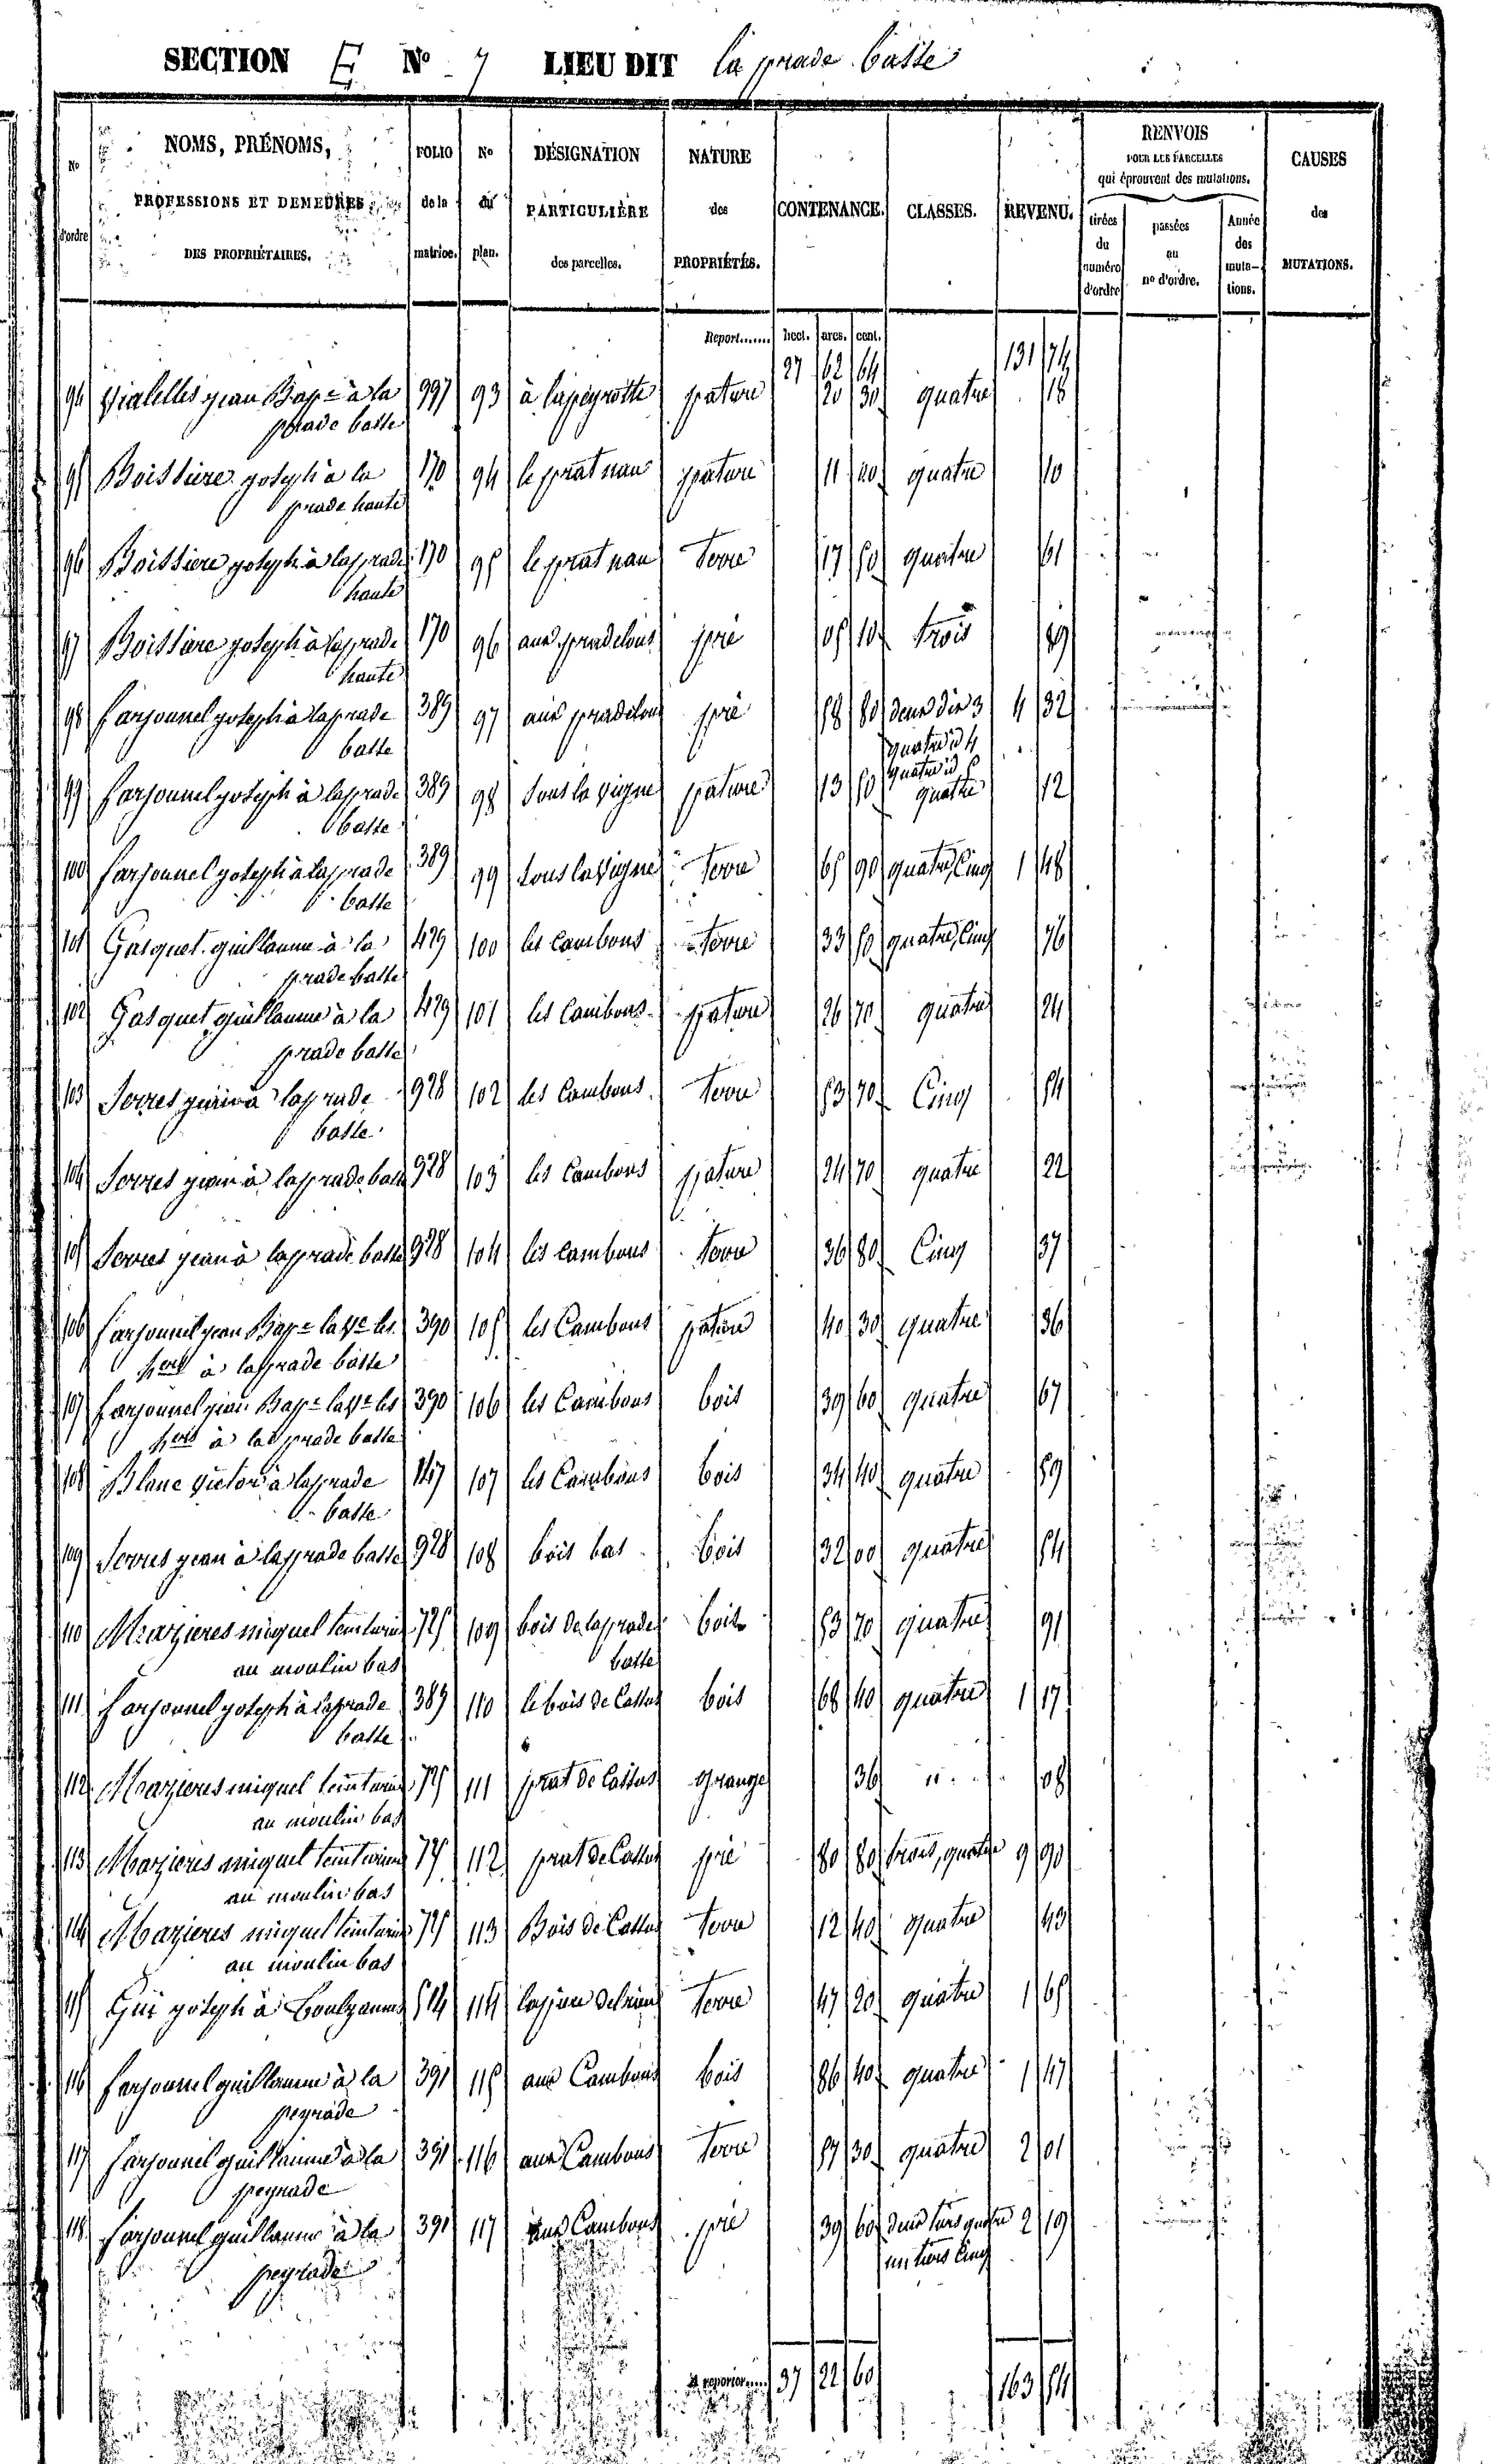 SECTION E No 7 LIEU DIT la prade basse
No d'ordre
NOMS, PRÉNOMS,
PROFESSIONS ET DEMEURES
DES PROPRIÉTAIRES.
FOLIO de la matrice.
No du plan.
DÉSIGNATION PARTICULIÈRE des parcelles.
NATURE des PROPRIÉTÉS.
CONTENANCE.
CLASSES.
REVENU.
RENVOIS
POUR LES PARCELLES
qui éprouvent des mutations.
tirées du numéro d'ordre
passées au no d'ordre.
Année des muta-tions.
CAUSES des MUTATIONS.
Report....... hect. ares. cent.
27 62 64 131 74
94 Vialelles jean Bap= à la 997 93 à lapeyrotte pature 20 30 quatre 18
prade basse
95 Boissiere joseph à la 170 94 le prat nau pature 11 20 quatre 10
prade haute
96 Boissiere joseph à la prade 170 95 le prat nau terre 17 50 quatre 61
haute
97 Boissiere joseph à la prade 170 96 aux pradelous pré 05 10 trois 89
haute
98 farjounel joseph à la prade 389 97 aux pradelous pré 58 80 deux dix 3 4 32
basse quatre id 4
quatre id 5
99 farjounel joseph à la prade 389 98 sous la vigne pature 13 50 quatre 12
basse
100 farjounel joseph à la prade 389 99 sous la vigne terre 65 90 quatre, Cinq 1 48
basse
101 Gasquet guillaume à la 429 100 les Cambous terre 33 50 quatre, Cinq 76
prade basse
102 Gasquet guillaume à la 429 101 les Cambous pature 26 70 quatre 24
prade basse
103 Serres jean à la prade 928 102 les Cambous terre 53 70 Cinq 54
basse
104 Serres jean à la prade basse 928 103 les Cambous pature 24 70 quatre 22
105 Serres jean à la prade basse 928 104 les Cambous terre 36 80 Cinq 37
106 farjounel jean Bap= les 390 105 les Cambous pature 40 30 quatre 36
hers à la prade basse
107 farjounel jean Bap= les 390 106 les Cambous bois 39 60 quatre 67
hers à la prade basse
108 Blanc victor à la prade 147 107 les Cambous bois 34 40 quatre 59
basse
109 Serres jean à la prade basse 928 108 bois bas bois 32 00 quatre 54
110 Mazieres miquel teinturier 725 109 bois de la prade bois 53 70 quatre 91
au moulin bas basse
111 farjounel joseph à la prade 389 110 le bois de Cassus bois 68 40 quatre 1 17
basse
112 Mazieres miquel teinturier 725 111 prat de Cassus grange 36 " 08
au moulin bas
113 Mazieres miquel teinturier 725 112 prat de Cassus pré 80 80 trois, quatre 9 90
au moulin bas
114 Mazieres miquel teinturier 725 113 Bois de Cassus terre 12 40 quatre 43
au moulin bas
115 Gui joseph à 514 114 terre 47 20 quatre 1 65
116 farjounel guillaume à la 391 115 aux Cambous bois 86 40 quatre 1 47
peyrade
117 farjounel guillaume à la 391 116 aux Cambous terre 57 30 quatre 2 01
peyrade
118 farjounel guillaume à la 391 117 aux Cambous pré 39 60 deux tiers quatre 2 19
peyrade un tiers Cinq
A reporter..... 37 22 60 163 54